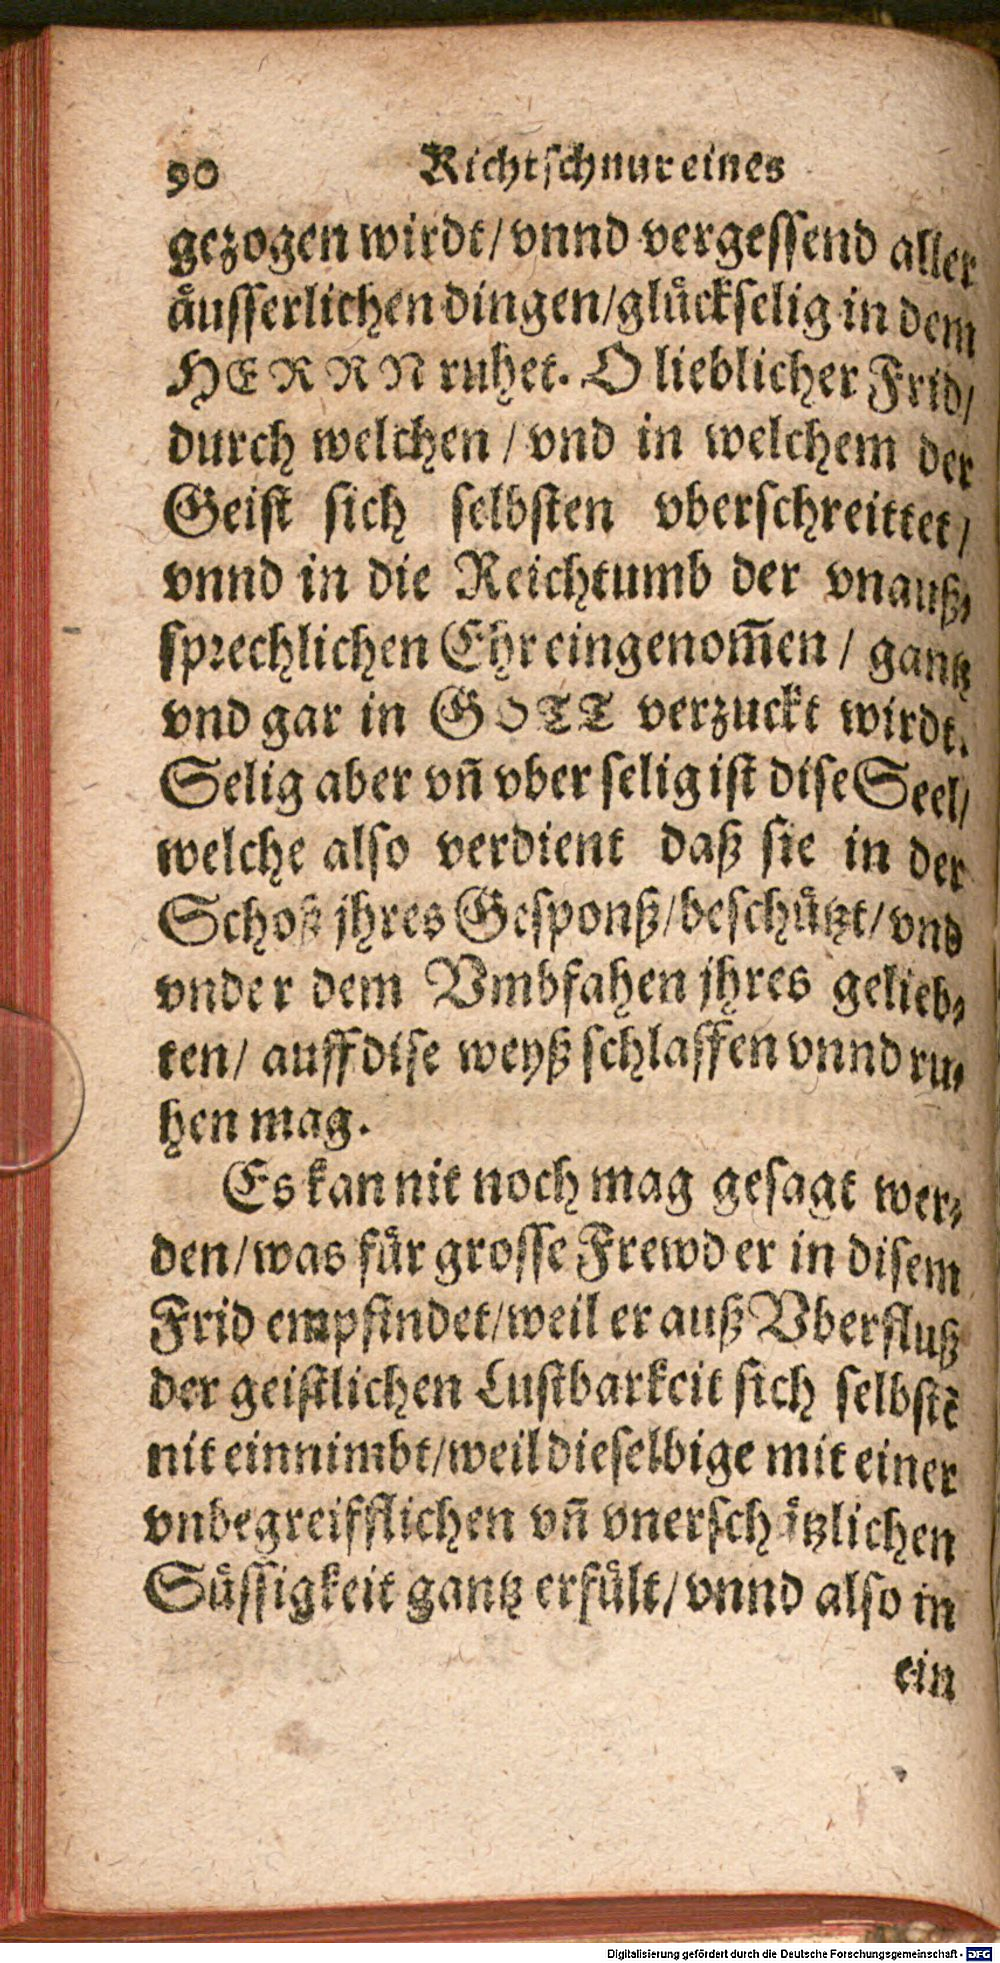 90 Richtschnur eines
gezogen wirdt/ vnnd vergessend aller
äusserlichen dingen/ glückselig in dem
HERRN ruhet. O lieblicher Frid/
durch welchen / vnd in welchem der
Geist sich selbsten vberschreittet/
vnnd in die Reichtumb der vnauß-
sprechlichen Ehr eingenom̃en / gantz
vnd gar in GOTT verzuckt wirdt.
Selig aber vñ vber selig ist dise Seel/
welche also verdient daß sie in der
Schoß jhres Gesponß/ beschützt/ vnd
vnder dem Vmbfahen jhres gelieb-
ten/ auff dise weyß schlaffen vnnd ru-
hen mag.
Es kan nit noch mag gesagt wer-
den/ was für grosse Frewd er in disem
Frid empfindet/ weil er auß Vberfluß
der geistlichen Lustbarkeit sich selbstẽ
nit einnimbt/ weil dieselbige mit einer
vnbegreifflichen vñ vnerschätzlichen
Süssigkeit gantz erfült/ vnnd also in
ein
Digitalisierung gefördert durch die Deutsche Forschungsgemeinschaft - DFG